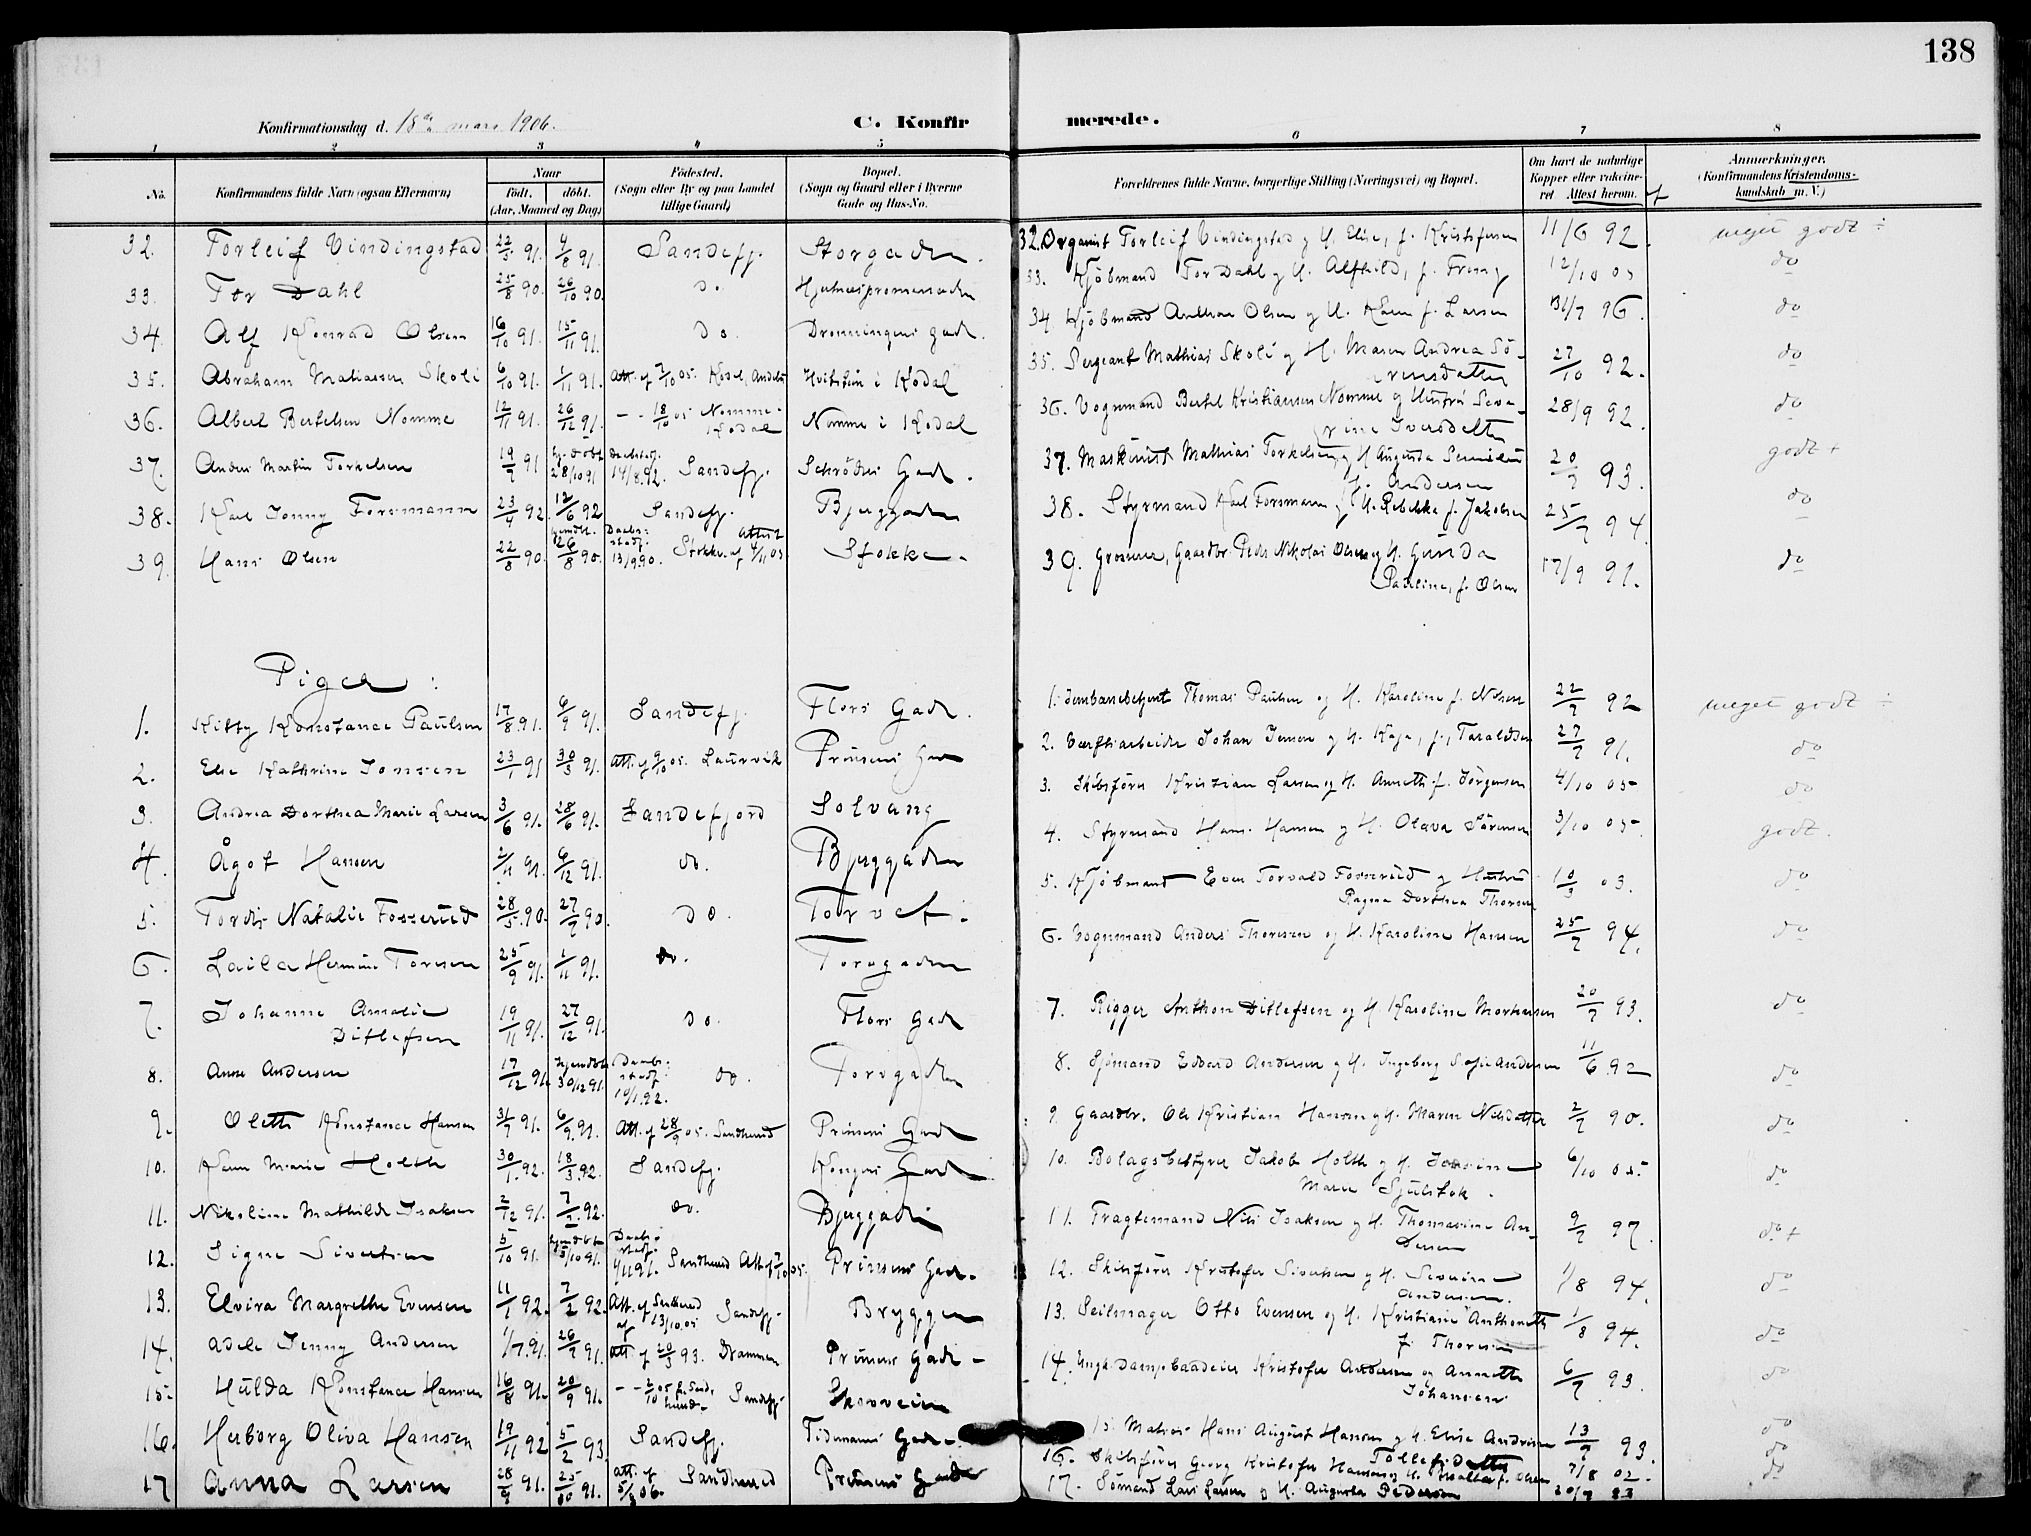 138
Konfirmationsdag d. 18de mars 1906.
C. Konfirmerede.
1 2 3 4 5 6 7 8
No.
Konfirmandens fulde Navn (ogsaa Efternavn)
Naar
født. døbt.
(Aar, Maaned og Dag)
Fødested.
(Sogn eller By og paa Landet
tillige Gaard)
Bopæl.
(Sogn og Gaard eller i Byerne
Gade og Hus-No.
Forældrenes fulde Navne, borgerlige Stilling (Næringsvei) og Bopæl.
Om havt de naturlige
Kopper eller vaccine-
ret Attest herom. af
Anmærkninger.
(Konfirmandens Kristendoms-
kundskab m. V.)
32. Torleif Vindingstad 22/5 91. 4/8 91. Sandefj. Storgaden. 32. Organist Torleif Vindingstad og H. Elise, f. Kristofersen 11/6 92. meget godt ÷
33. Tor Dahl 25/8 90. 26/10 90. do. Hjertnespromenaden 33. Kjøbmand Tor Dahl og H. Alfhild, f. 12/10 05 do
34. Alf Konrad Olsen 16/10 91. 15/11 91. do. Dronningens gade. 34. Kjøbmand Olsen og H. f. Larsen 96. do
35. Abraham Matiassen Skoli 6/10 91. 1/11 91. Att. af 7/10 05. Kodal, Andebu i Kodal 35. Sergeant Mathias Skoli og H. Maren Andrea Sø-
rensdatter 27/10 92. do
36. Albert Bertelsen Nomme 12/11 91. 26/12 91. – – 18/10 05 Nomme-
Kodal Nomme i Kodal 36. Vognmand Bertel Kristiansen Nomme og Hustru Seve-
rine Iversdatter 28/9 92. do
37. Anders Martin Torkelsen 19/9 91 hj. døbt
28/10 91 Daabstadf.
14/8 92. Sandefj. Schrøders Gade. 37. Maskinist Mathias Torkelsen og H. Augusta
f. Andersen 20/9 93. godt +
38. Karl Jonny Forsmann 23/4 92. 12/6 92 Sandefj. Bjerggaden 38. Styrmand Karl Forsmann og H. Rebekka f. Jakobsen 94. do
39. Hans Olsen 22/8 90. hjemdøbt
26/8 90. Daabs-
stadf.
13/9 90. Stokke. Attest
af 4/11 05 Stokke. 39. Gaardbr. Peder Nikolai Olsen og H. Gunda
Pauline, f. Olsen 17/9 91. do
Piger:
1. Kitty Konstance Paulsen 17/8 91. 6/9 91. Sandefj. Flors Gade. 1. Jernbanebetjent Thomas Paulsen og H. Karoline f. Nilsen 22/9 92 meget godt ÷
2. Else Kathrine Jonsen 23/1 91 30/3 91. Att. af 9/10 05. Laurvik Prinsens Gade 2. Værftsarbeider Johan Jensen og H. Kaja, f. Taraldsen 27/7 91. do
3. Andrea Dorthea Marie Larsen 3/6 91. 28/6 91. Sandefjord Solvang 3. Skibsfører Kristian Larsen og H. Annette f. Jørgensen 4/10 05 do
4. Ågot Hansen 2/11 91. 6/12 91. do. Bjerggaden 4. Styrmand Hans Hansen og H. Olava Sørensen 3/10 05. godt.
5. Tordis Natalie Fosserud 28/5 90. 27/7 90. do. Torvet. 5. Kjøbmand Even Torvald Fosserud og Hustru
Ragna Dorthea Thorsen 10/3 03. do
6. Laila Hermine Toresen 25/9 91. 1/11 91. do. Torvgaden 6. Vognmand Anders Thoresen og H. Karoline Hansen 25/7 94. do
7. Johanne Amalie
Ditlefsen 19/11 91. 27/12 91. do. Flors Gade 7. Rigger Anthon Ditlefsen og H. Karoline Mortensen 20/7 93. do
8. Anna Andersen 17/12 91. hjemdøbt
30/12 91. Daabs-
stadf.
10/1 92. do. Torvgaden 8. Sjømand Edvard Andersen og H. Ingeborg Sofie Andersen 11/6 92 do
9. Olette Konstance Hansen 31/7 91. 6/9 91. Att. af 28/9 05. Sandherred Prinsens Gade 9. Gaardbr. Ole Kristian Hansen og H. Maren Nilsdatter 2/7 90. do
10. Karen Marie Holth 30/1 92. 18/3 92. Sandefj. Kongens Gade 10. Bolagsbestyrer Jakob Holth og H. Josefine
Marie Sjulstok. 6/10 05. do
11. Nikoline Mathilde Isaksen 2/12 91. 7/2 92. do. Bjerggaden 11. Fragtemand Nils Isaksen og H. Thomasine An-
dersen 9/7 97. do +
12. Signe Sivertsen 5/10 91. hjemdøbt
5/10 91. Daabs-
stadf. Sandherred Att. af 05. Prinsens Gade. 12. Skibsfører Kristofer Sivertsen og H. Severine
Andersen. 1/8 94. do
13. Elvira Margrethe Evensen 11/1 92. 7/2 92. Att. af
af 13/10 05 Sandefj. Bryggen 13. Seilmager Otto Evensen og H. Kristiane Anthonette
f. Thoresen 1/8 94. do
14. Adele Jenny Andersen 1/7 91. 26/7 91. Att. af 20/3 93. Drammen Prinsens Gade – 14. Ungk. dampbaadeier Kristofer Andersen og Annette
Johansen 6/7 93. do
15. Hulda Konstance Hansen 16/8 91. 20/9 91. – – 2/10 05 f. Sand-
herred Sandefj. Skovveien 15. Matros Hans August Hansen og H. Elise Andrine
Tollefsdatter 13/9 93. do
16. Herborg Oliva Hansen 19/11 92 5/2 93. Sandefj. Tidemans Gade. 16. Skibsfører Georg Kristofer Hansen og H. f. Olsen 7/8 02. do
17 Anna Larsen 28/9 91. 25/10 91. Att. af
06. Sandherred Prinsens Gade 17. Sømand Lars Larsen og H. Augusta Pedersen 20/7 93 do